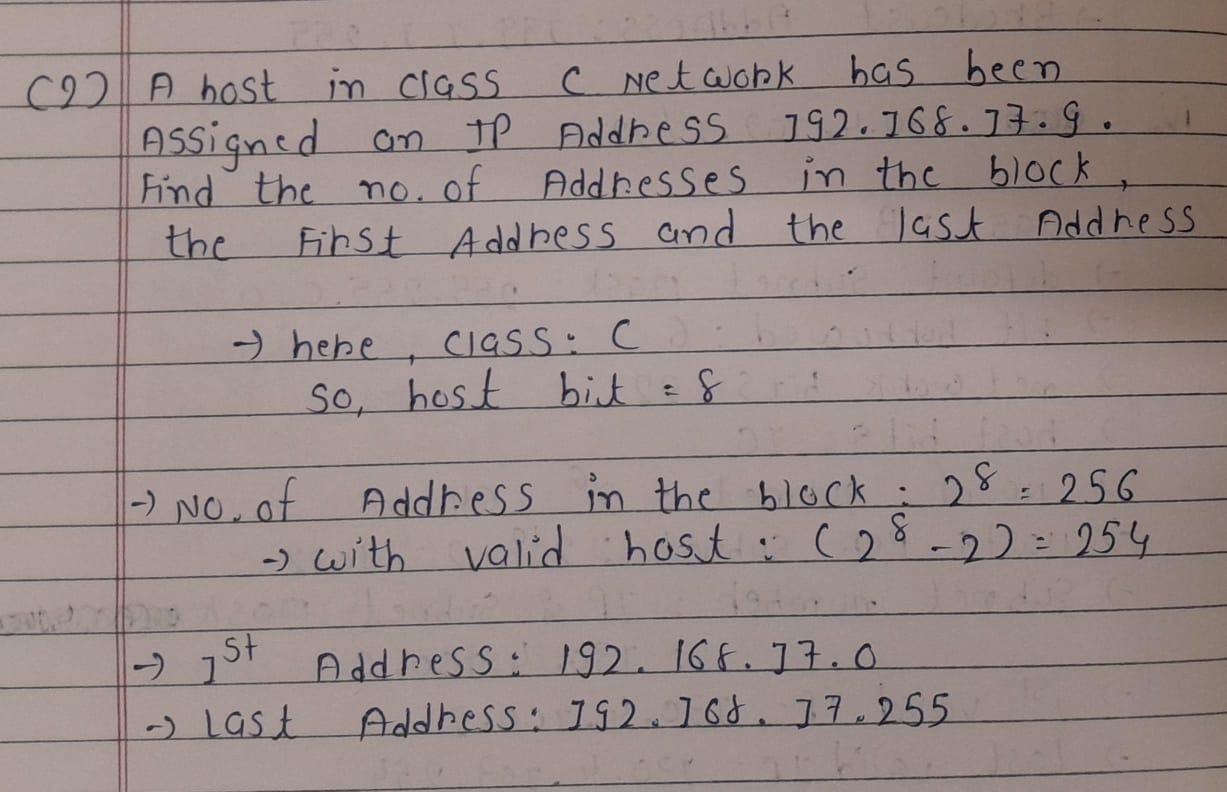 (2) A host in class C Network has been
Assigned an IP Address 192.168.17.9.
Find the no. of Addresses in the block,
the First Address and the last Address
→ here, class: C
so, host bit = 8
→ No. of Address in the block : 2⁸ = 256
→ with valid host : (2⁸ - 2) = 254
→ 1st Address : 192.168.17.0
→ Last Address : 192.168.17.255